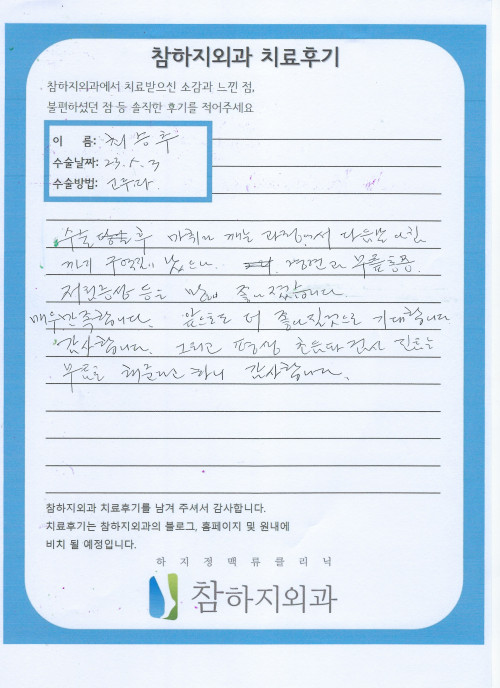 참하지외과 치료후기
참하지외과에서 치료받으신 소감과 느낀 점,
불편하셨던 점 등 솔직한 후기를 적어주세요
이 름: 최승후
수술날짜: 23. 5. 3
수술방법:
수술 후 마취가 깨는 과정에서 다음날 아침
까지 구역질이 났으나 경련과 부종 통증
저린증상 등은 많이 좋아졌습니다.
매우만족합니다. 앞으로도 더 좋아질것으로 기대합니다
감사합니다. 그리고 평생 초음파 검사 진료는
무료로 해준다고 하니 감사합니다.
참하지외과 치료후기를 남겨 주셔서 감사합니다.
치료후기는 참하지외과의 블로그, 홈페이지 및 원내에
비치 될 예정입니다.
하지정맥류클리닉
참하지외과